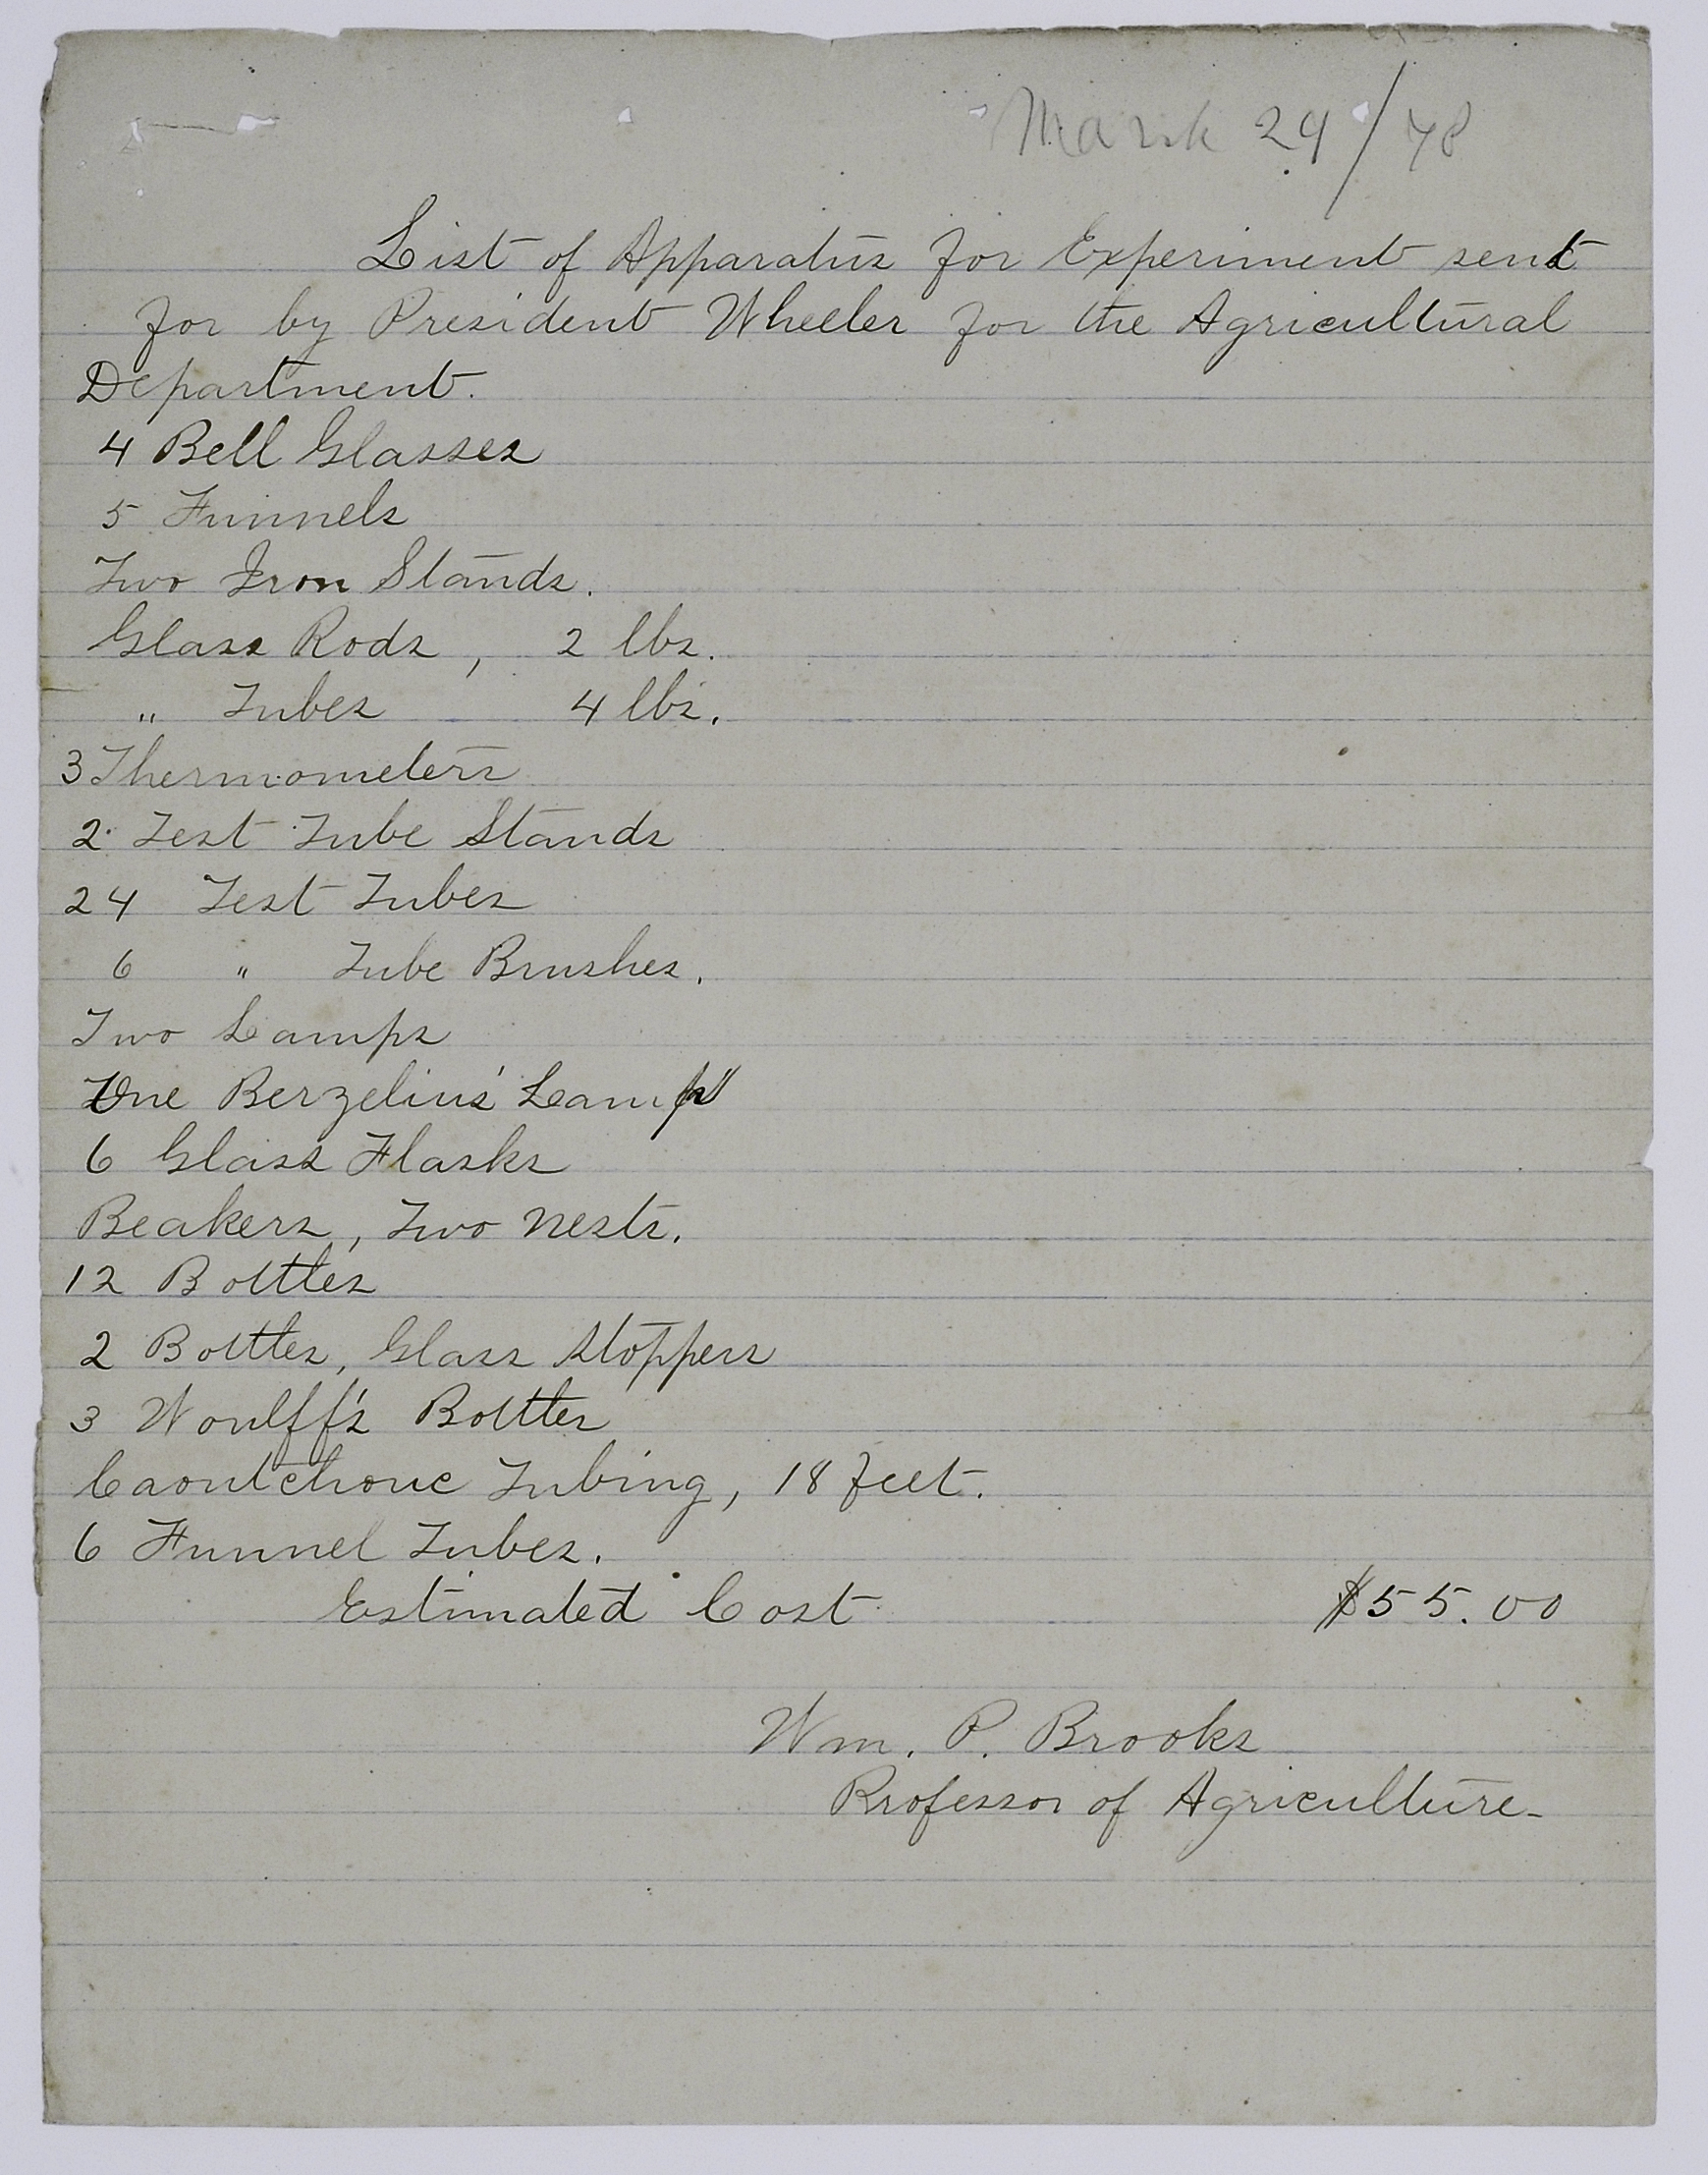 March 24/78
List of Apparatus for Experiment sent
for by President Wheeler for the Agricultural
Department.
4 Bell Glasses
5 Funnels
Two Iron Stands.
Glass Rods, 2 lbs.
" Tubes 4 lbs.
3 Thermometers
2 Test Tube Stands
24 Test Tubes
6 " Tube Brushes.
Two Lamps
One Berzelius' Lamp
6 Glass Flasks
Beakers, Two Nests.
12 Bottles
2 Bottles, Glass Stoppers
3 Woulff's Bottles
Caoutchouc Tubing, 18 feet.
6 Funnel Tubes.
Estimated Cost $55.00
Wm. P. Brooks
Professor of Agriculture